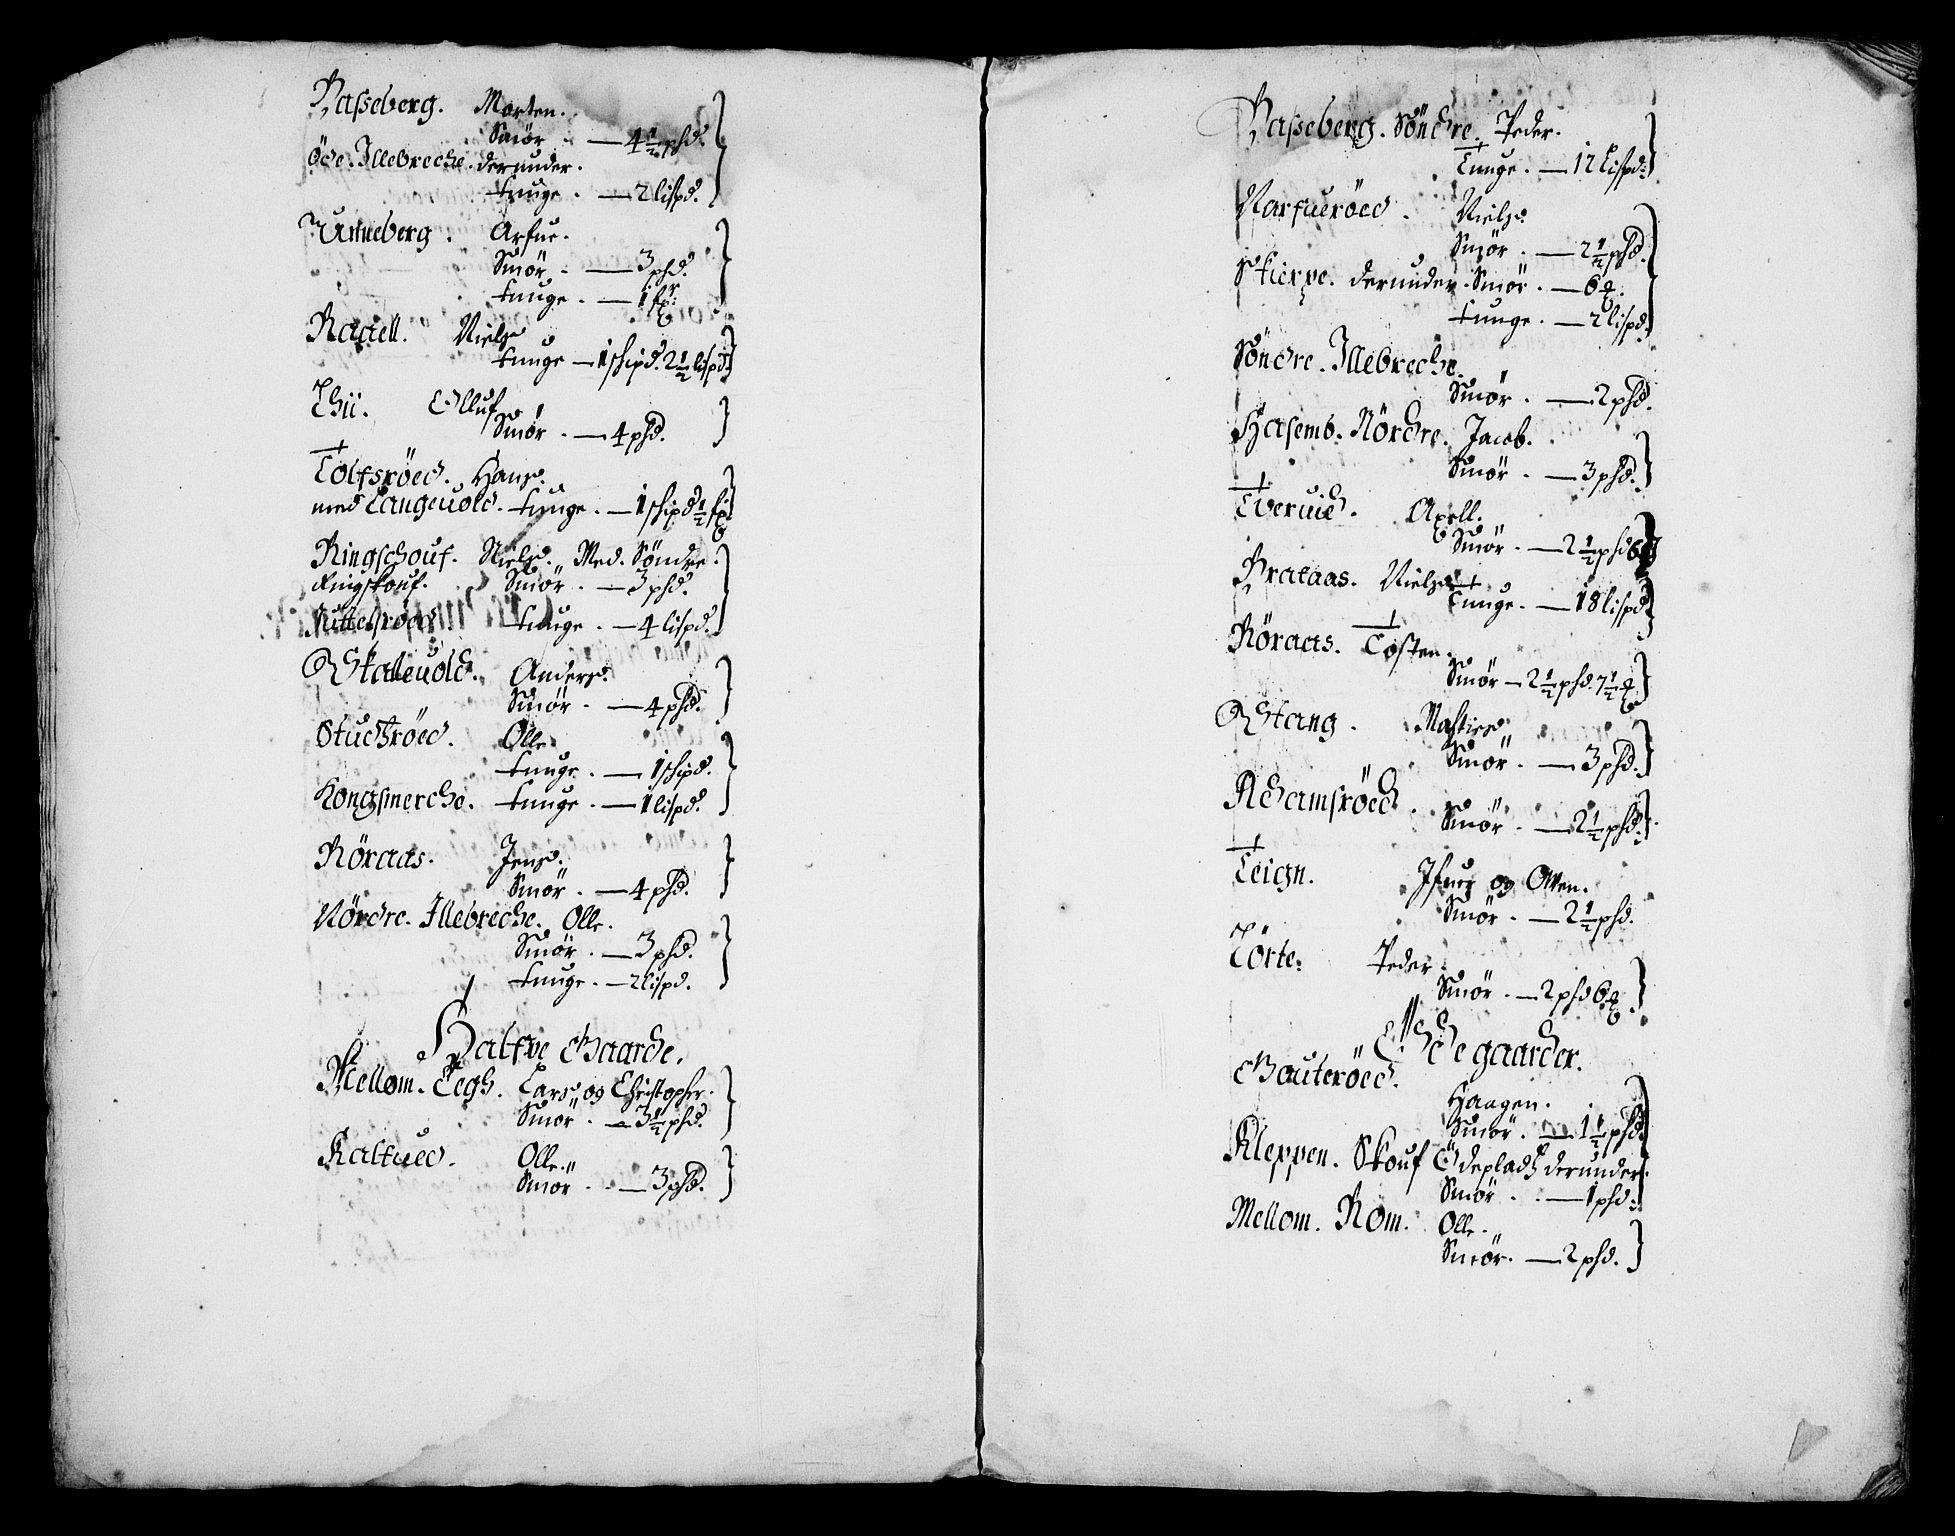 Basseberg. Morten.
Smör. — 4½ phd.
öde. Illebreche. derunder.
tunge. — 2 lispd.
Unneberg. Arfue.
Smör. — 3 phd.
tunge. — 1 fr:
Raaell. Niels
tunge — 1 schipd. 2½ lispd
Thii. Olluf
Smör. — 4 phd.
Tolfsröed. Hans.
med Langeuold. tunge. — 1 schipd ½ fr
Ringschouf. Niels. Med. Söndre.
Ringskouf. Smör. — 3 phd.
tunge. — 4 lispd.
Skaleuold. Anders.
Smör. — 4 phd.
Studsröed. Olle
tunge. — 1 schipd.
Kongsmerche. tunge. — 1 lispd.
Röraas. Jens.
Smör. — 4 phd.
Nördre. Illebreche. Olle.
Smör. — 3 phd.
tunge. — 2 lispd.
Halfve Gaarde.
Mellom. Tegh. Lars og Christopher.
Smör. — 3½ phd.
Kalfued. Olle.
Smör. — 3 phd.
Basseberg. Söndre. Peder.
Tunge. — 12 lispd:
Narfueröed. Niels
Smör. — 2½ phd.
Skierpe. derunder. Smör. — 6
tunge. — 2 lispd.
Söndre. Illebreche.
Smör. — 2 phd.
Hasemb. Nördre. Jacob.
Smör. — 3 phd.
Tveruid. Axell.
Smör. — 2½ phd
Brataas. Niels
Tunge. — 18 lispd
Röraas. Tosten.
Smör — 2½ phd. 7½
Stang. Mathies
Smör. — 3 phd.
Adamsröed. Smör. — 2½ phd.
Teign. Ifuer og Offen.
Smör. — 2½ phd.
Törte. Peder
Smör. — 2 phd 6
Ödegaarder.
Gauteröed.
Haagen.
Smör. — 1½ phd.
Kleppen. Skouf Ödeplads derunder.
Smör. — 1 phd.
Mellom. Rom. Olle.
Smör. — 2 phd.